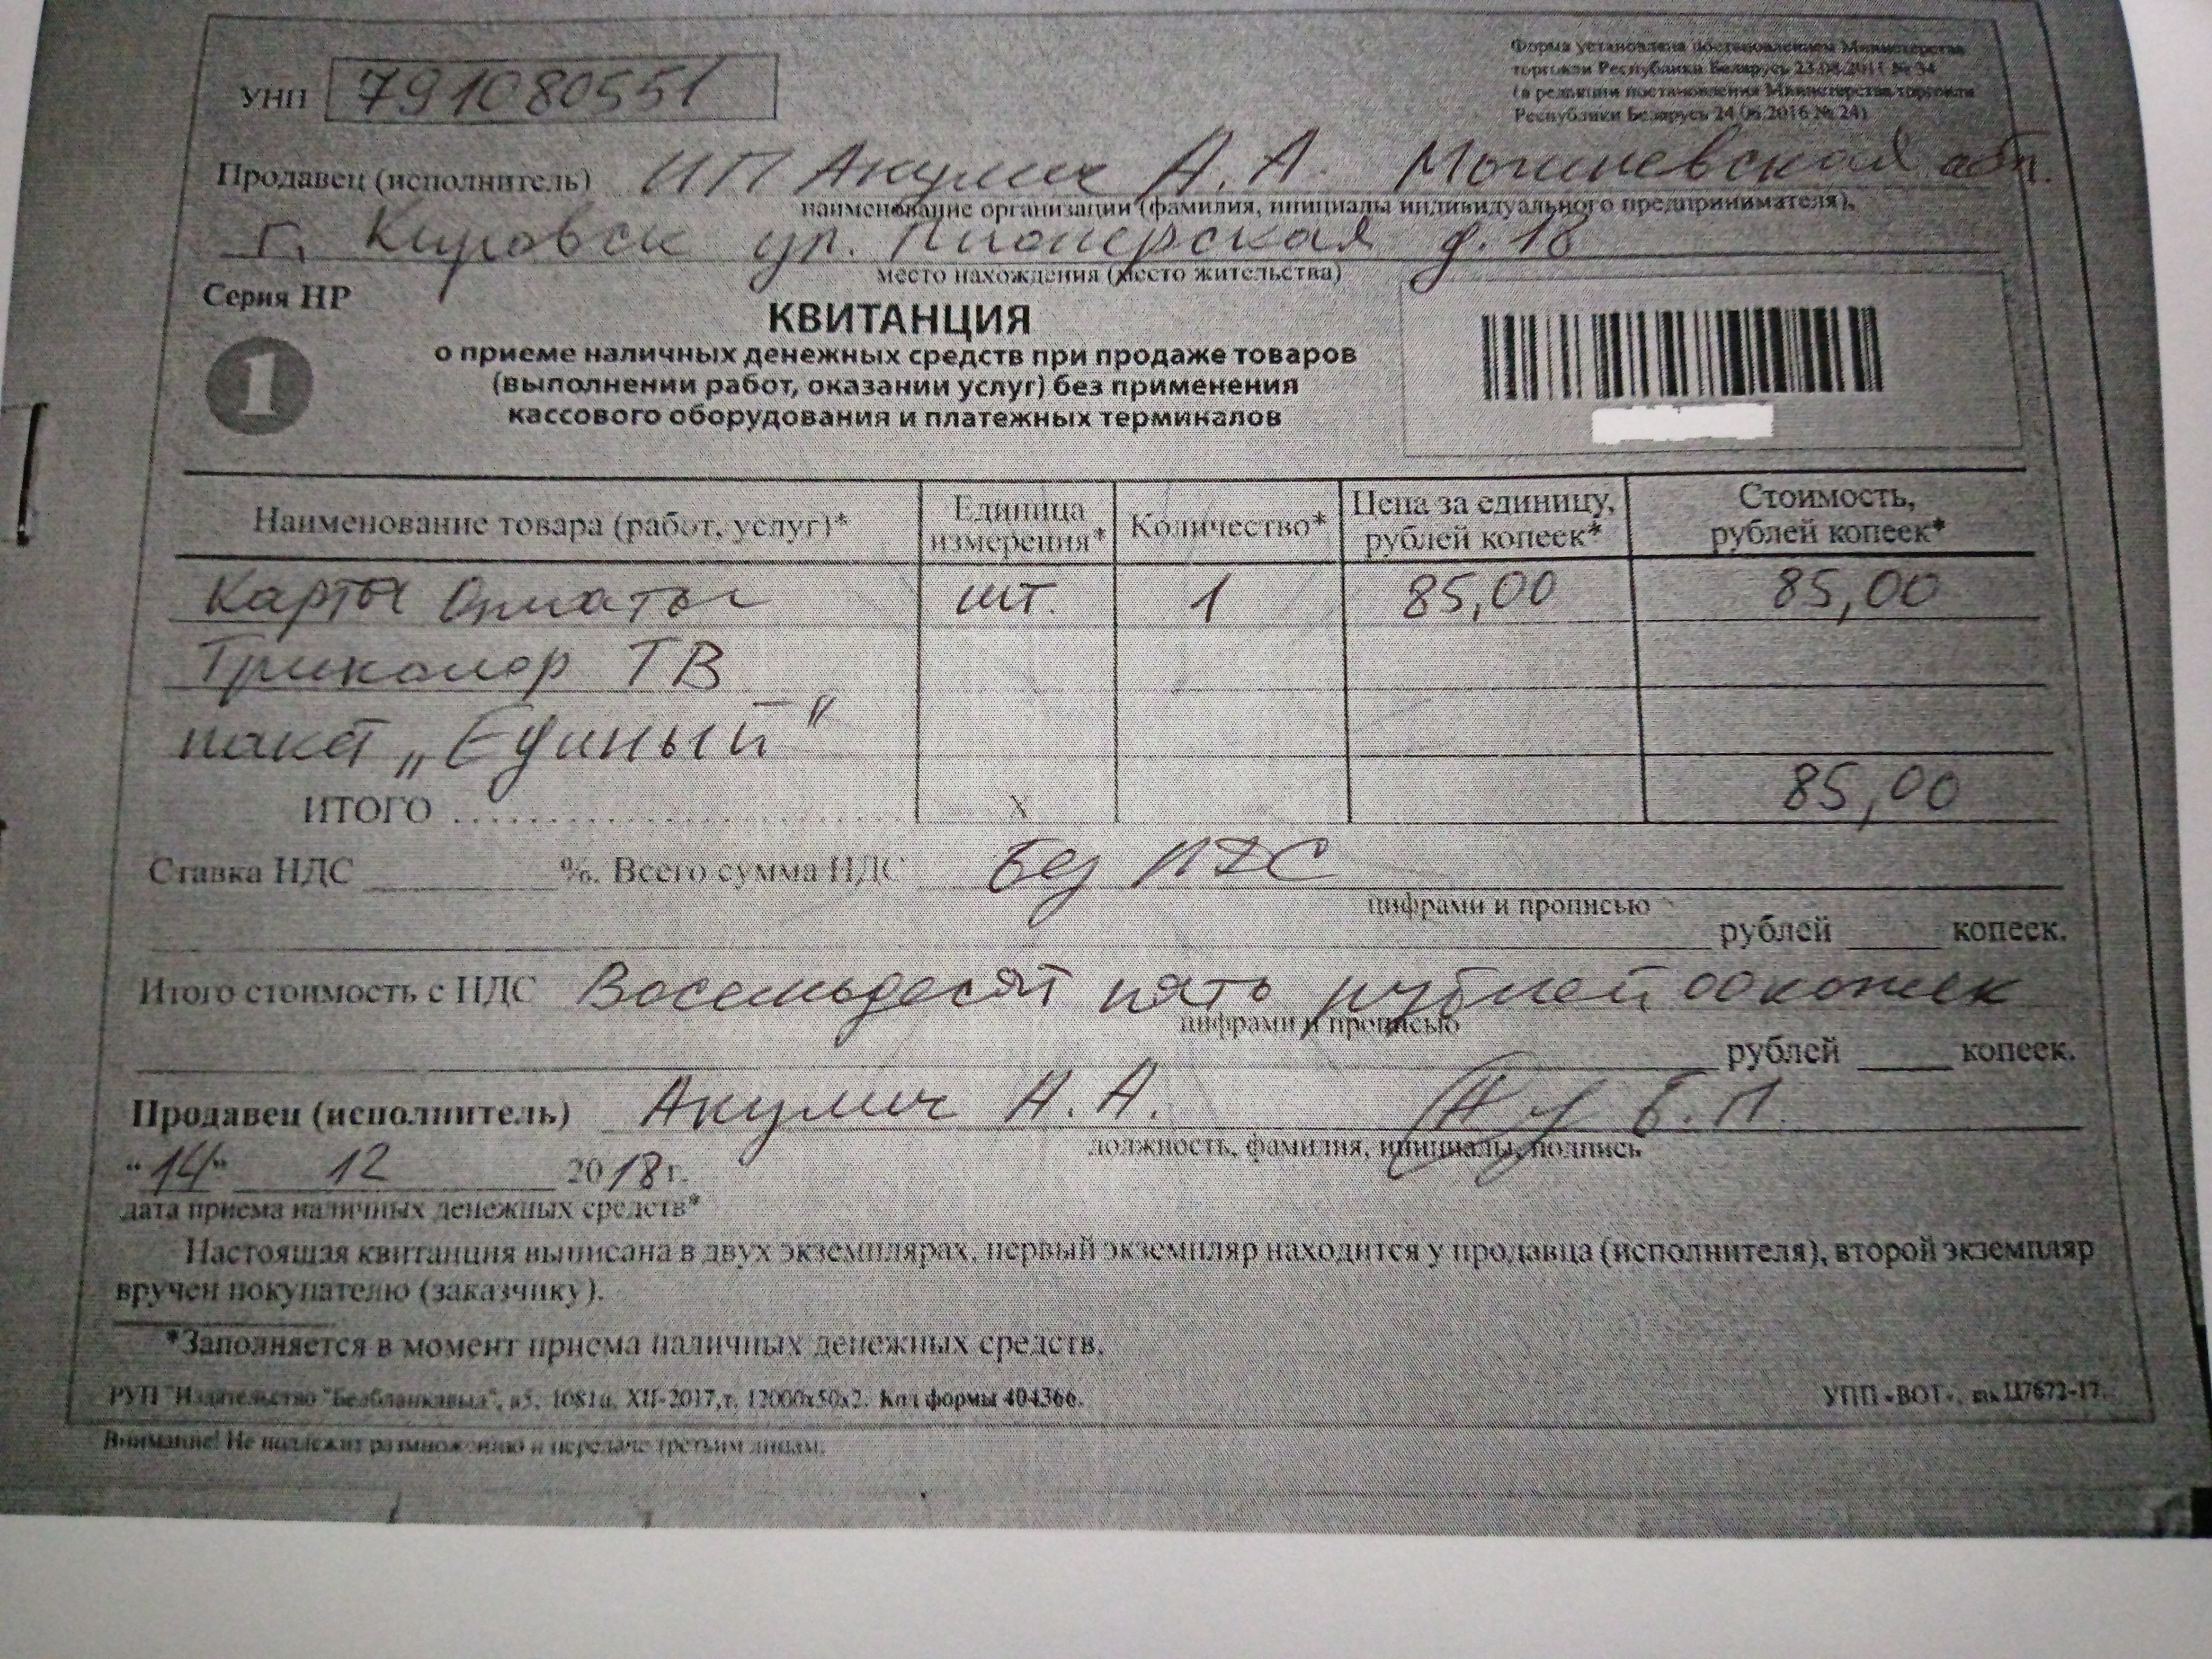 Форма установлена постановлением Министерства
торговли Республики Беларусь 23.08.2011 № 54
(в редакции постановления Министерства торговли
Республики Беларусь 24.06.2016 № 24)
УНП 791080551
Продавец (исполнитель) ИП Акулич А.А. Могилевская обл.
наименование организации (фамилия, инициалы индивидуального предпринимателя),
г. Кировск ул. Пионерская д. 18
место нахождения (место жительства)
Серия НР
КВИТАНЦИЯ
1
о приеме наличных денежных средств при продаже товаров
(выполнении работ, оказании услуг) без применения
кассового оборудования и платежных терминалов
Наименование товара (работ, услуг)* Единица измерения* Количество* Цена за единицу, рублей копеек* Стоимость, рублей копеек*
Карты Оплаты шт. 1 85,00 85,00
Триколор ТВ
пакет „Единый"
ИТОГО х 85,00
Ставка НДС %. Всего сумма НДС Без НДС
цифрами и прописью
рублей копеек.
Итого стоимость с НДС Восемьдесят пять рублей 00 копеек
цифрами и прописью
рублей копеек.
Продавец (исполнитель) Акулич А.А. Б.П.
должность, фамилия, инициалы, подпись
"14" 12 2018 г.
дата приема наличных денежных средств*
Настоящая квитанция выписана в двух экземплярах, первый экземпляр находится у продавца (исполнителя), второй экземпляр
вручен покупателю (заказчику).
*Заполняется в момент приема наличных денежных средств.
РУП "Издательство "Белбланкавыд", з5. 1081ц, XII-2017, т. 12000х50х2. Код формы 404366. УПП «ВОТ», зак. Ц7672-17.
Внимание! Не подлежит размножению и передаче третьим лицам.